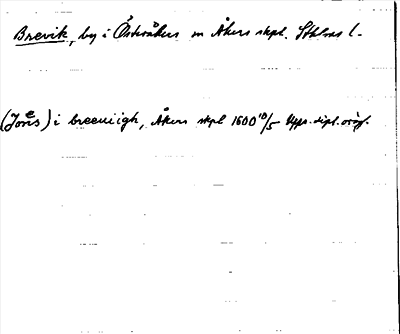 Brevik, by i Österåkers sn Åkers skpl. Sthlms l.
(Jöns) i breeuiigh, Åkers skpl 1600 10/5 Upps. dipl. orig.